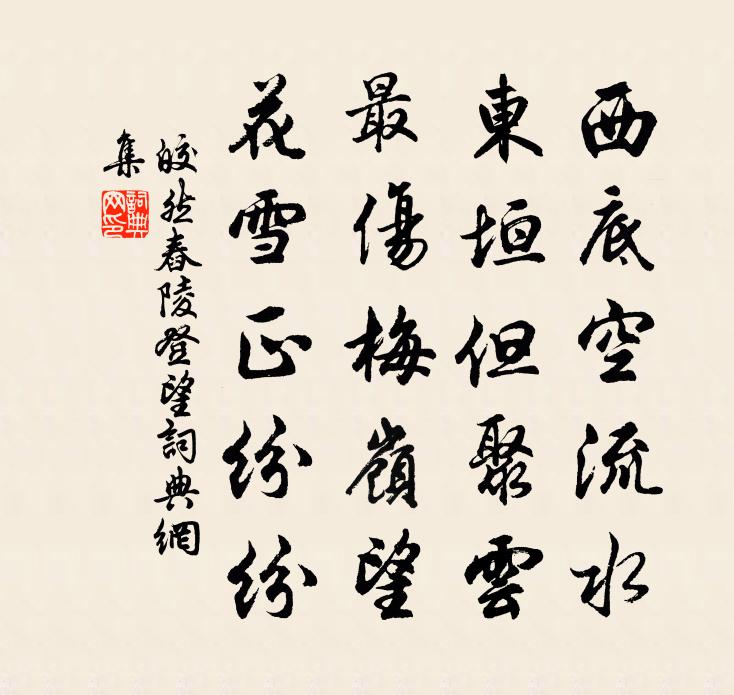 西底空流水
東垣但聚雲
最傷梅嶺望
花雪正紛紛
皎然舂陵登望詞典網
集
詞典網印